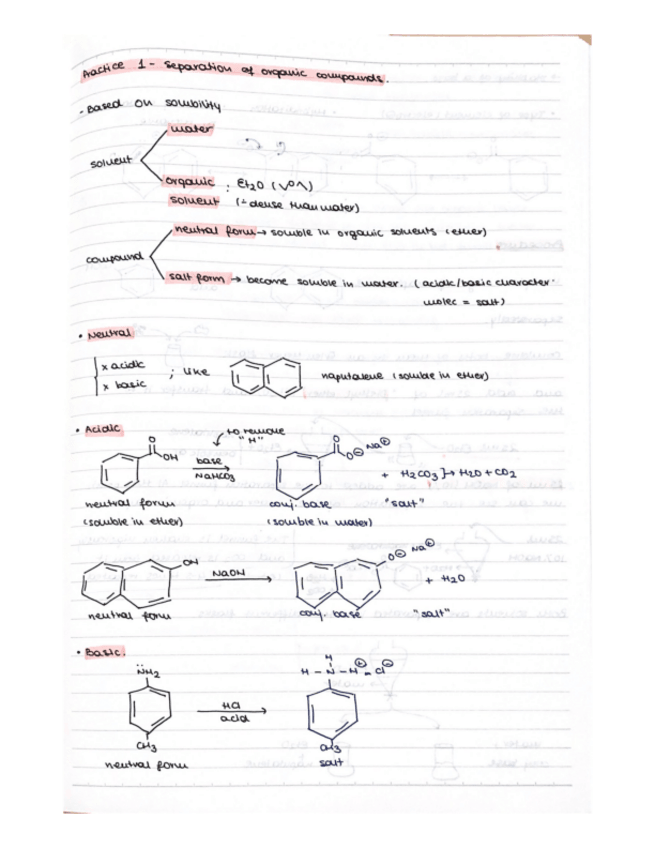 Practice 1 - Separation of organic compounds.
- Based on solubility
solvent
water
organic solvent : Et2O (∨O∧)
(÷ dense than water)
compound
neutral form → soluble in organic solvents (ether)
salt form → become soluble in water. (acidic/basic character
molec = salt)
• Neutral
x acidic
x basic
; like
naptalene (soluble in ether)
• Acidic
to remove
"H"
O
OH
base
NaHCO3
O
O⊖ Na⊕
+ H2CO3 }→ H2O + CO2
neutral form
conj. base
"salt"
(soluble in ether)
(soluble in water)
OH
NaOH
O⊖ Na⊕
+ H2O
neutral form
conj. base
"salt"
• Basic.
N̈H2
HCl
acid
H
H - N - H⊕ Cl⊖
CH3
CH3
neutral form
salt